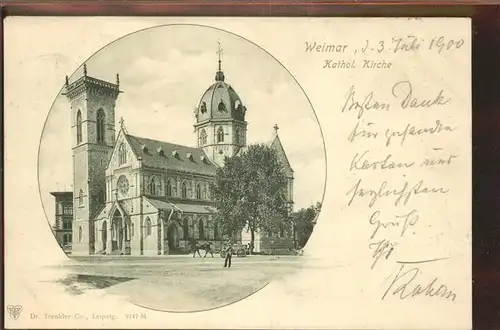 Weimar, d. 3. Juli 1900
Kathol. Kirche
Besten Dank
für gesandte
Karten und
herzlichsten
Gruß
Ihr
Dr. Trenkler Co., Leipzig.